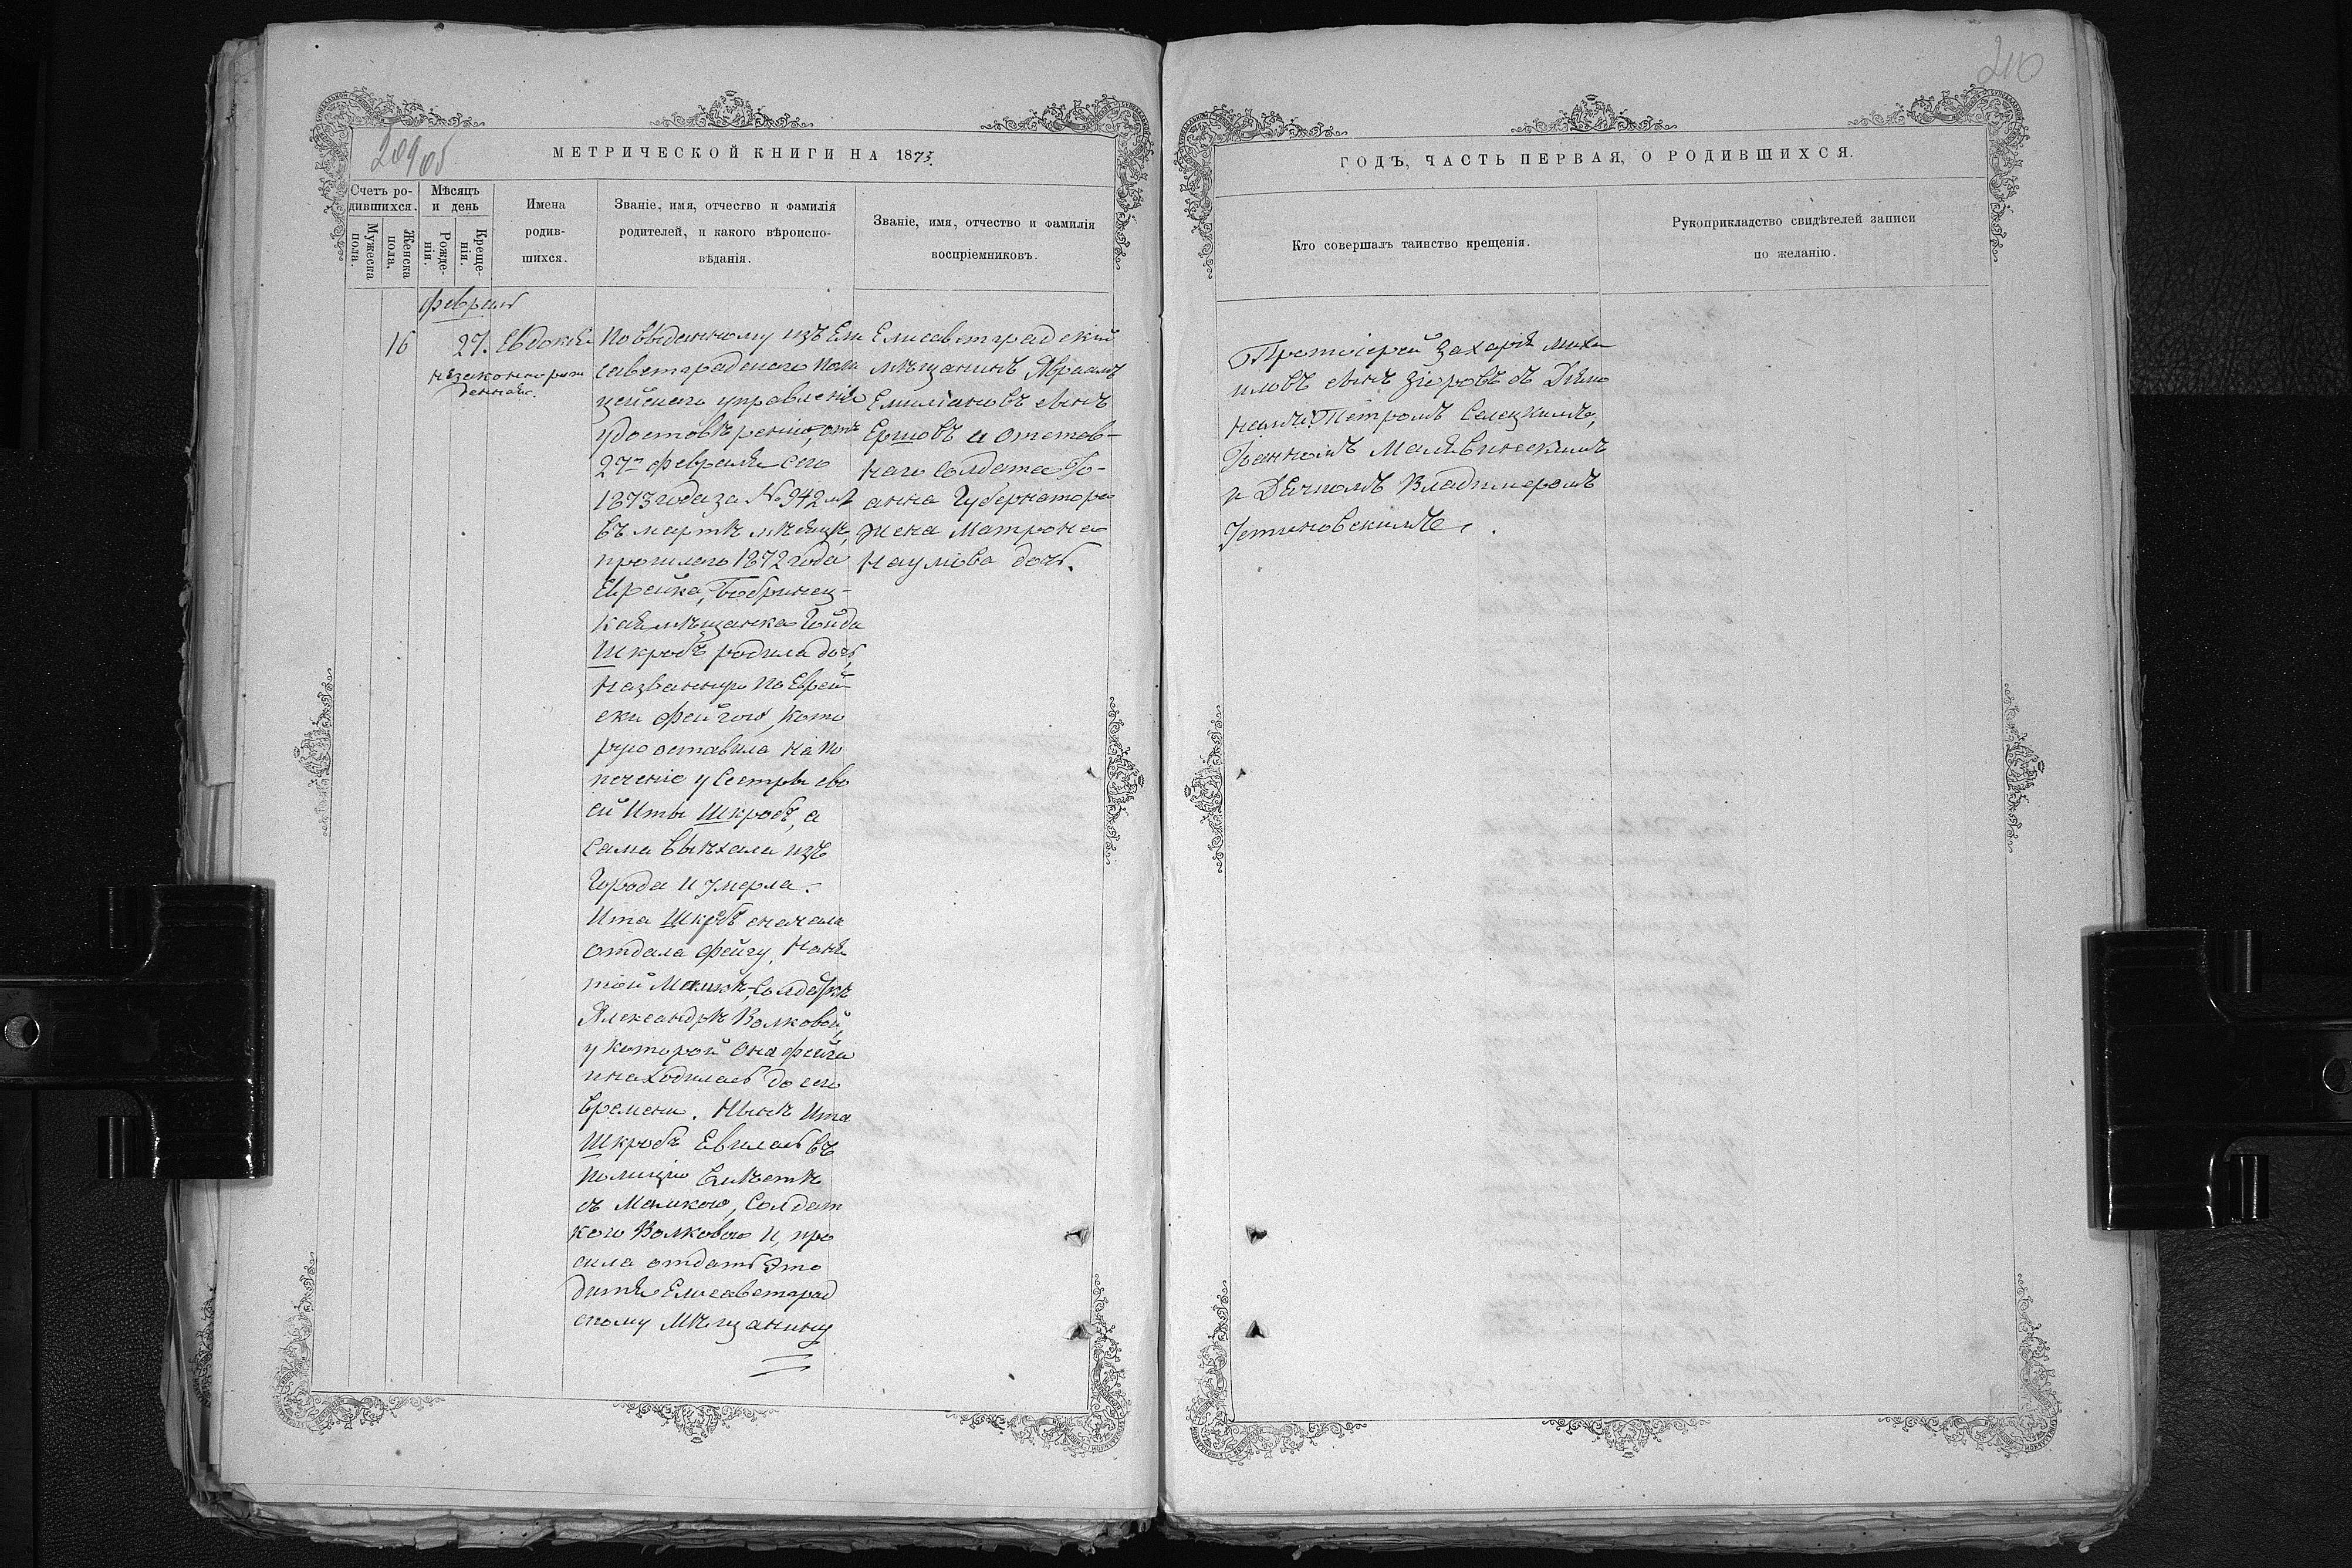 210
20905
МЕТРИЧЕСКОЙ КНИГИ НА 1873.
Счетъ ро-
дившихся.
Мужеска
пола.
Женска
пола.
Мѣсяцъ
и день
Рожде-
нія.
Креще-
нія.
Имена
родив-
шихся.
Званіе, имя, отчество и фамилія
родителей, и какого вѣроиспо-
вѣданія.
Званіе, имя, отчество и фамилія
воспріемниковъ.
Февраля
16
27.
Евдокія
незаконорож
денная.
По выданному изъ Ели
саветградскаго поли
цейскаго управленія
удостовѣренію, отъ
27го февраля сего
1873 года за № 942мъ
въ мартѣ мѣсяцѣ,
прошлаго 1872 года
Еврейка, Бобринец-
кая мѣщанка Гойда
Шкробъ родила дочь,
названную по Еврей
ски Фейгою, кото
рую оставила на по
печеніе у сестры сво
ей Иты Шкробъ, а
сама выѣхала изъ
города и умерла.
Ита Шкробъ сначала
отдала Фейгу, наня
той Мамкѣ, солдаткѣ
Александрѣ Волковой,
у которой она Фейга
и находилась до сего
времени. Нынѣ Ита
Шкробъ явилась въ
полицію вмѣстѣ
съ Мамкою, солдат
кою Волковою и, про
сила отдать это
дитя Елисаветград
скому мѣщанину
Елисаветградскій
мѣщанинъ Авраамъ
Емиліановъ сынъ
Ершовъ и отстав-
наго солдата Іо-
анна Губернатора
жена Матрона
Наумова дочь.
ГОДЪ, ЧАСТЬ ПЕРВАЯ, О РОДИВШИХСЯ.
Кто совершалъ таинство крещенія.
Рукоприкладство свидѣтелей записи
по желанію.
Протоіерей Захарія Миха
иловъ сынъ съ Діяко
нами: Петромъ Селецкимъ,
Іоанномъ Малявинскимъ
и Дьячкомъ Владимеромъ
Устиновскимъ.